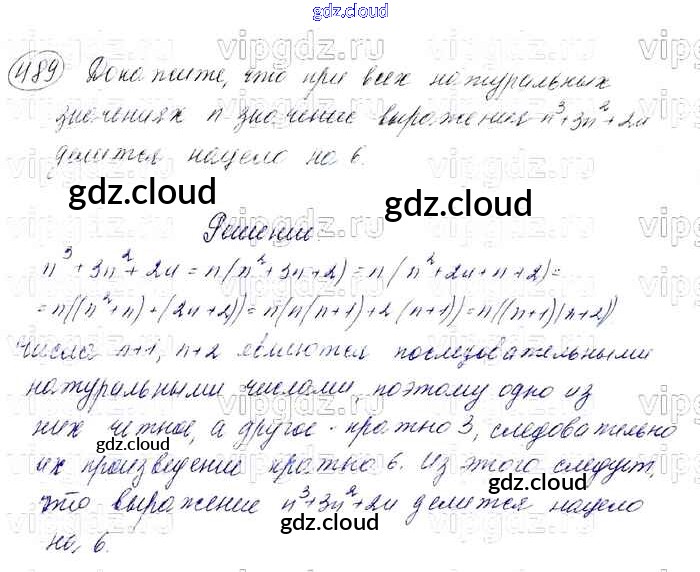 gdz.cloud
489 Докажите, что при всех натуральных
значениях n значение выражения n³+3n²+2n
делится нацело на 6.
gdz.cloud
gdz.cloud
Решение
n³+3n²+2n = n(n²+3n+2) = n(n²+2n+n+2)=
= n((n²+n)+(2n+2)) = n(n(n+1)+2(n+1)) = n((n+1)(n+2))
Числа n+1, n+2 являются последовательными
натуральными числами, поэтому одно из
них четное, а другое - кратно 3, следовательно
gdz.cloud
gdz.cloud
их произведение кратно 6. Из этого следует,
что выражение n³+3n²+2n делится нацело
gdz.cloud
gdz.cloud
на 6.